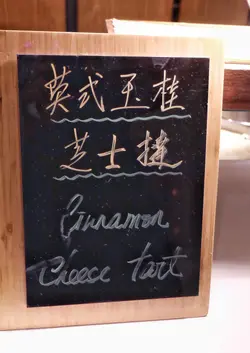 英式玉桂
芝士撻
Cinnamon
Cheece tart